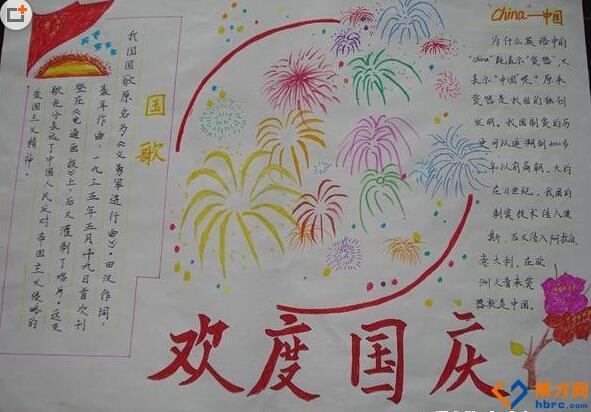 国歌
我国国歌原名为《义勇军进行曲》,田汉作词,
聂耳作曲,一九三五年五月十九日首次刊
登在《电通画报》上,后又灌制了唱片。这支
歌充分表达了中国人民反对帝国主义侵略的
爱国主义精神。
"China"—中国
为什么英语中的
"china"既表示"瓷器",又
表示"中国"呢?原来
瓷器是我国的独创
发明。我国制瓷的历
史可以追溯到
年以前商朝,大约
在11世纪,我国的
制瓷技术传入波
斯,后又传入阿拉伯,
意大利,在欧
洲人看来瓷
器就是中国。
欢度国庆
hbrc.com